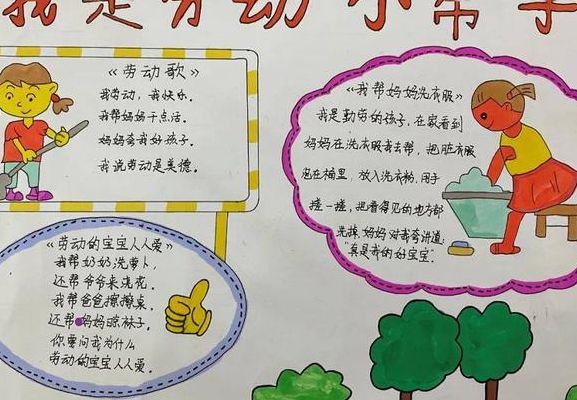 我是劳动小帮手
《劳动歌》
我劳动，我快乐。
我帮妈妈干点活。
妈妈夸我好孩子。
我说劳动是美德。
《我帮妈妈洗衣服》
我是勤劳的孩子，在家看到
妈妈在洗衣服我去帮，把脏衣服
泡在桶里，放入洗衣粉，用手
搓一搓，把看得见的地方都
先搓，妈妈对我夸讲道：
"真是我的好宝宝"
《劳动的宝宝人人爱》
我帮奶奶洗萝卜，
还帮爷爷来浇花。
我帮爸爸擦擦桌，
还帮妈妈晾袜子。
你要问我为什么
劳动的宝宝人人爱。